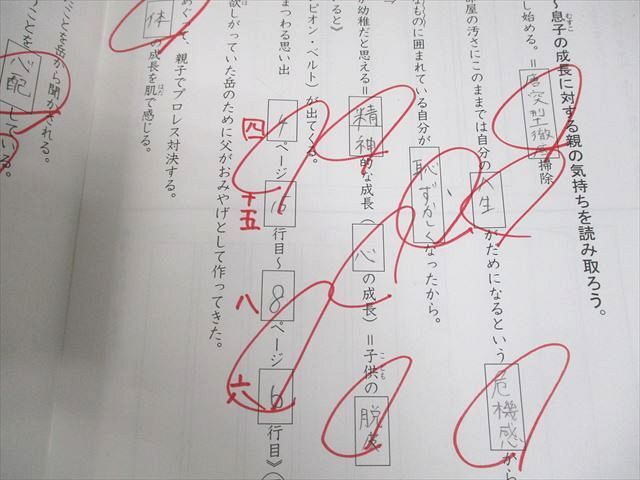 ～息子の成長に対する親の気持ちを読み取ろう。
むすこ
し始める。＝唐突型徹底掃除
部屋の汚さにこのままでは自分の人生がだめになるという危機感から
なものに囲まれている自分が恥ずかしくなったから。
が幼稚だと思える＝精神的な成長（心の成長）＝子供の脱皮
こども
ると》
ピオン・ベルト）が出てくる。
まつわる思い出
4ページ15行目～8ページ6行目》
四
十五
八
六
欲しがっていた岳のために父がおみやげとして作ってきた。
めぐって、親子でプロレス対決する。
体の成長を肌で感じる。
はだ
ことを岳から聞かされる。
ことを心配している。